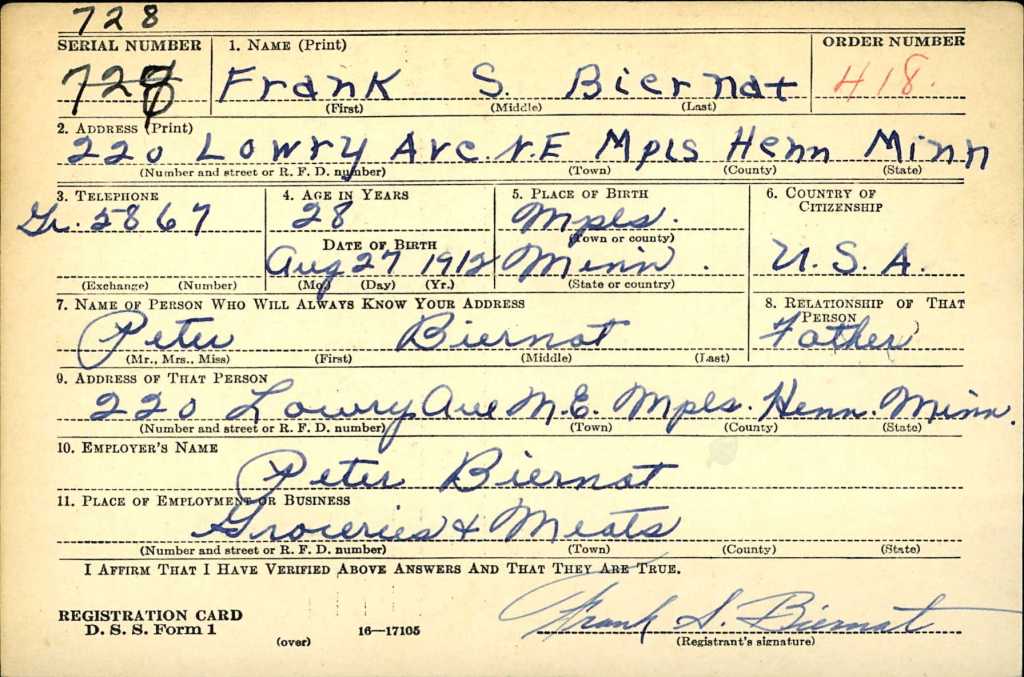 728
SERIAL NUMBER 1. NAME (Print) ORDER NUMBER
728 Frank S. Biernat 418.
(First) (Middle) (Last)
2. ADDRESS (Print)
220 Lowry Ave. N.E Mpls Henn Minn
(Number and street or R. F. D. number) (Town) (County) (State)
3. TELEPHONE 4. AGE IN YEARS 5. PLACE OF BIRTH 6. COUNTRY OF CITIZENSHIP
Gr. 5867 28 Mpls.
(Town or county)
DATE OF BIRTH
Aug 27 1912 Minn. U. S. A.
(Exchange) (Number) (Mo.) (Day) (Yr.) (State or country)
7. NAME OF PERSON WHO WILL ALWAYS KNOW YOUR ADDRESS 8. RELATIONSHIP OF THAT PERSON
Peter Biernat Father
(Mr., Mrs., Miss) (First) (Middle) (Last)
9. ADDRESS OF THAT PERSON
220 Lowry Ave N.E. Mpls. Henn. Minn.
(Number and street or R. F. D. number) (Town) (County) (State)
10. EMPLOYER'S NAME
Peter Biernat
11. PLACE OF EMPLOYMENT OR BUSINESS
Groceries & Meats
(Number and street or R. F. D. number) (Town) (County) (State)
I AFFIRM THAT I HAVE VERIFIED ABOVE ANSWERS AND THAT THEY ARE TRUE.
REGISTRATION CARD
D. S. S. Form 1 (over) 16—17105
Frank S. Biernat
(Registrant's signature)